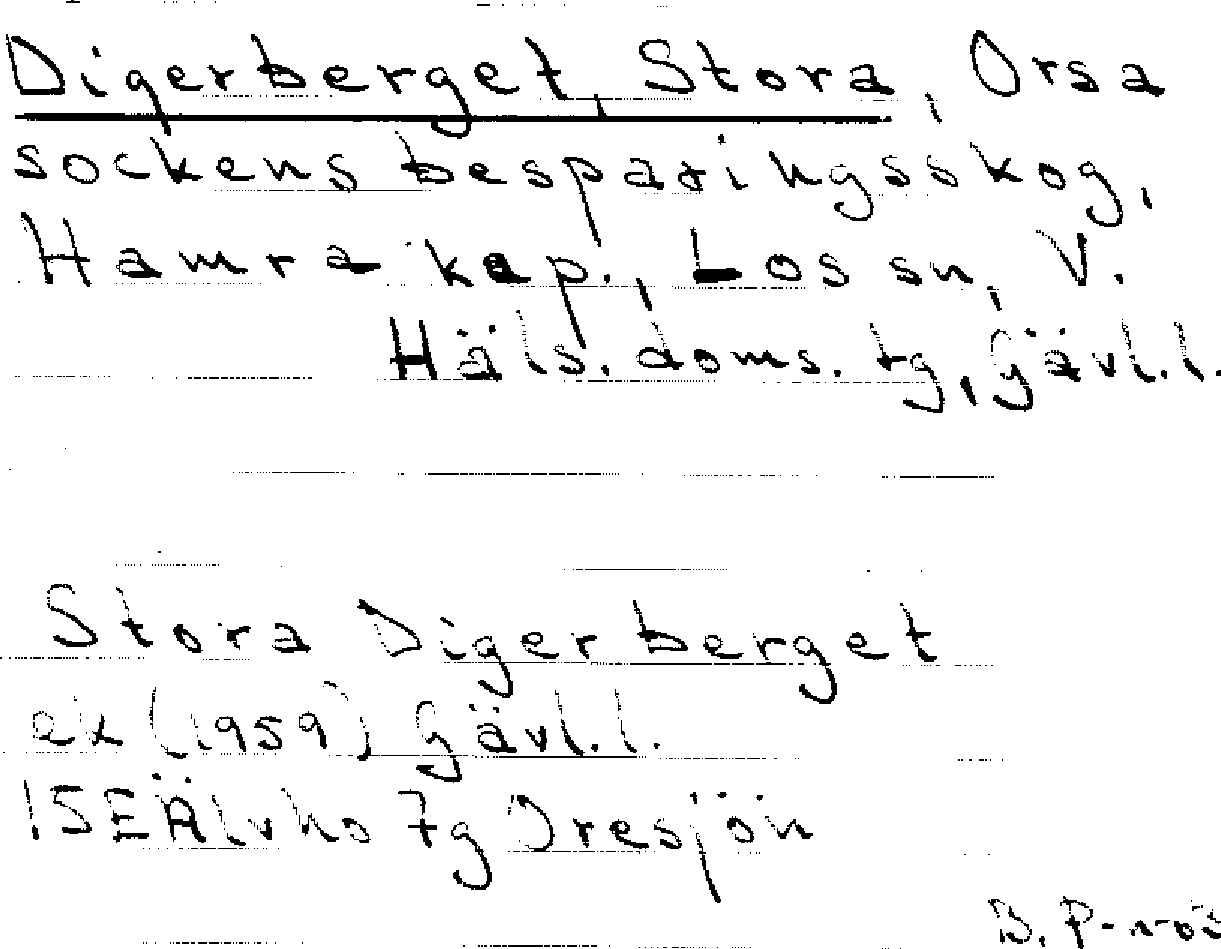 Digerberget, Stora, Orsa
sockens besparingsskog,
Hamra kap., Los sn, V.
Häls. doms. tg, Gävl.l.
Stora Digerberget
ek (1959) Gävl.l.
15E Älvho 7g Oresjön